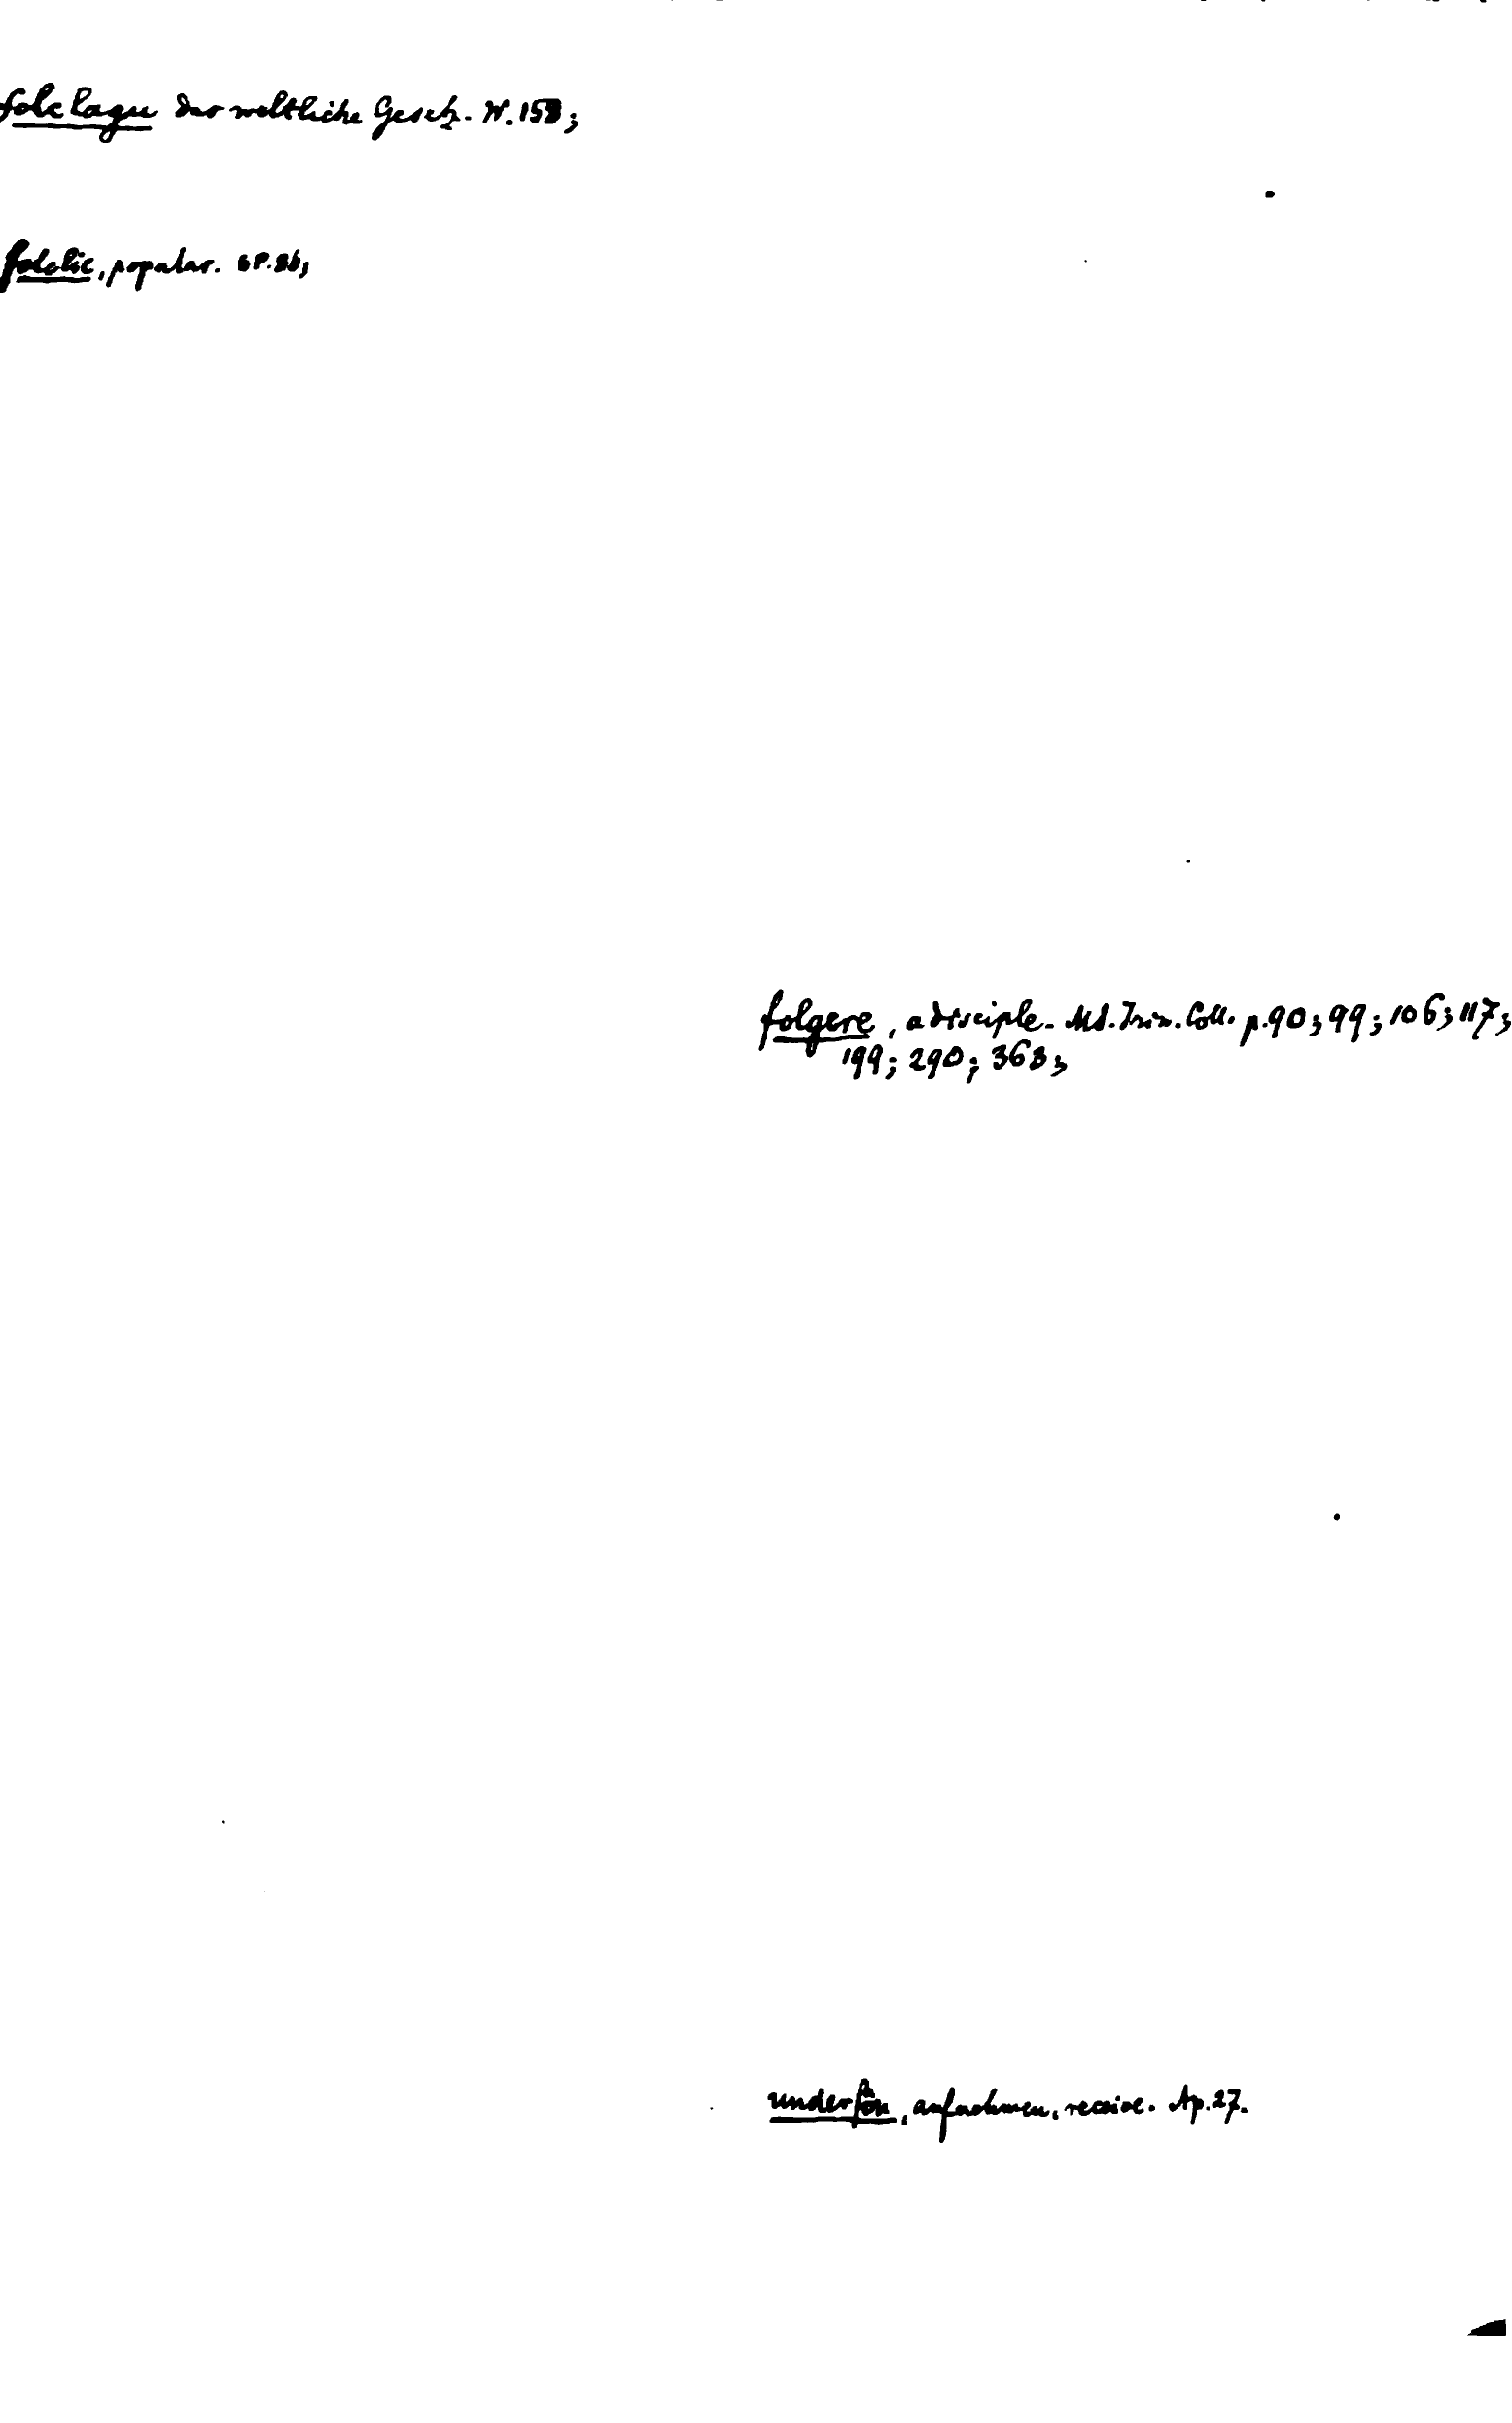 folclagu das weltliche Gesetz. W. 158;
folclic, popular. GP. 36;
folgere, a disciple. MS. Trin. Coll. p. 90; 99; 106; 117;
199; 290; 363;
underfôn, aufnehmen, receive. Ap. 27.